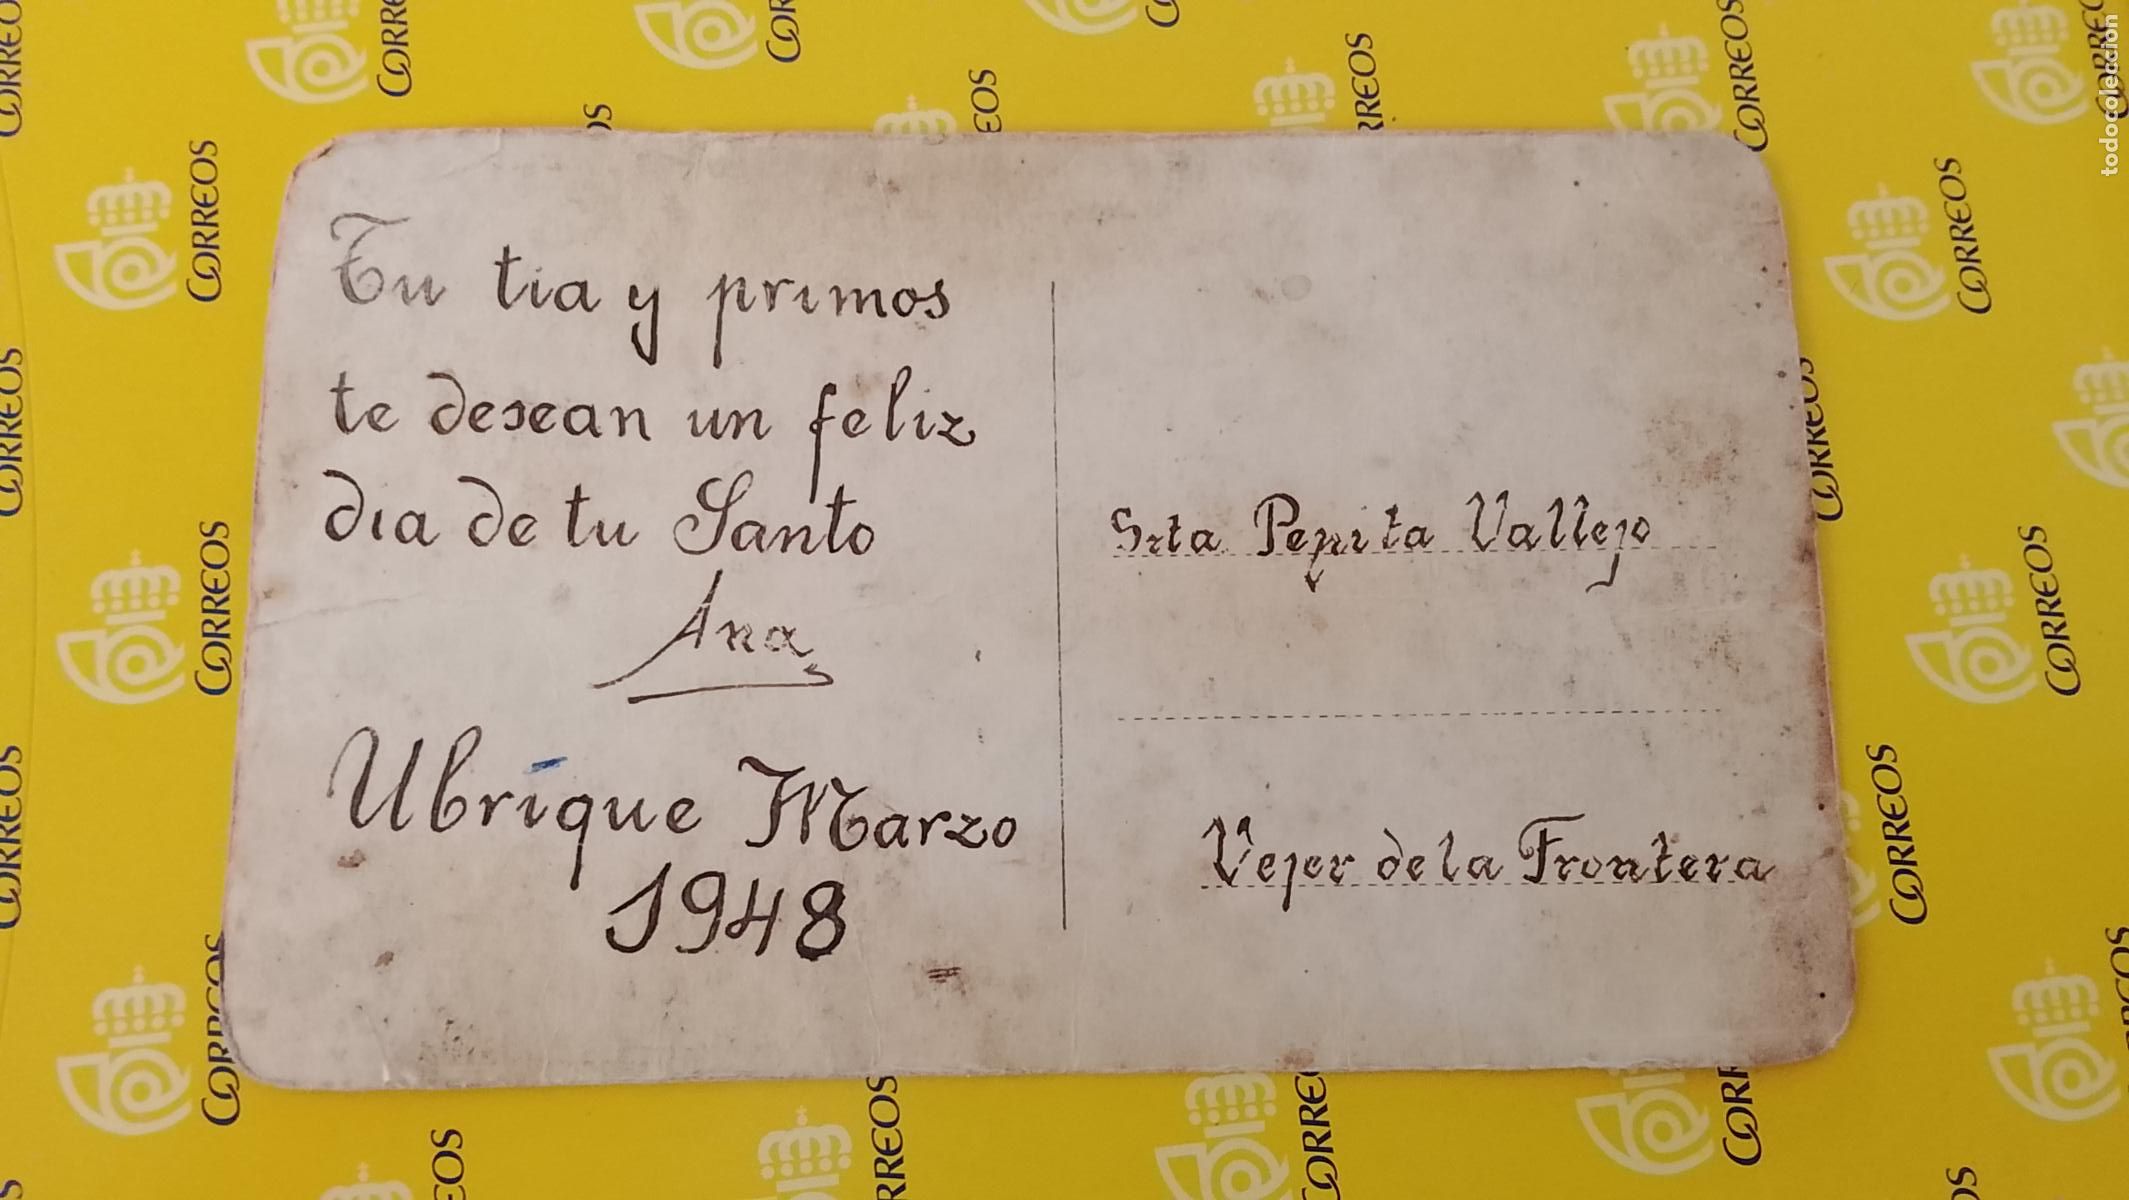 Tu tia y primos
te desean un feliz
dia de tu Santo
Ana
Ubrique Marzo
1948
Srta Pepita Vallejo
Vejer de la Frontera
CORREOS
todocoleccion